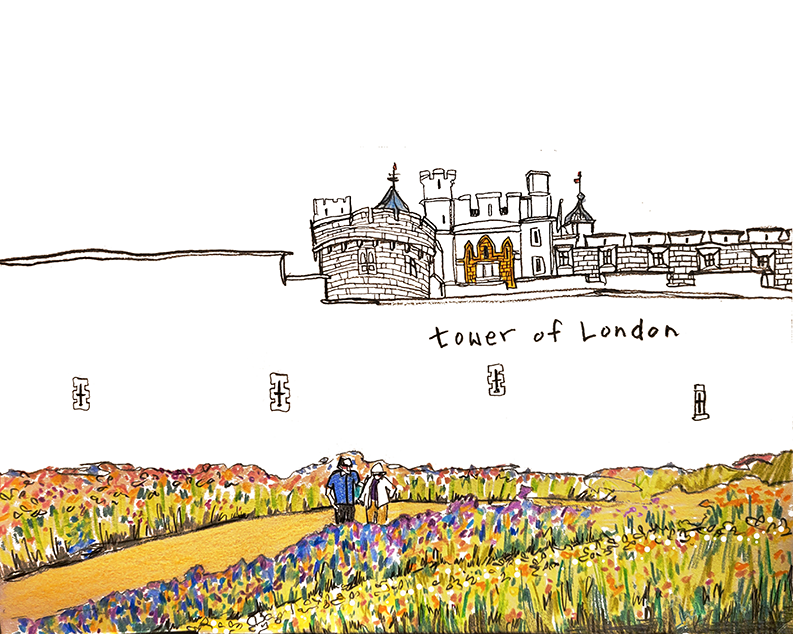 tower of London